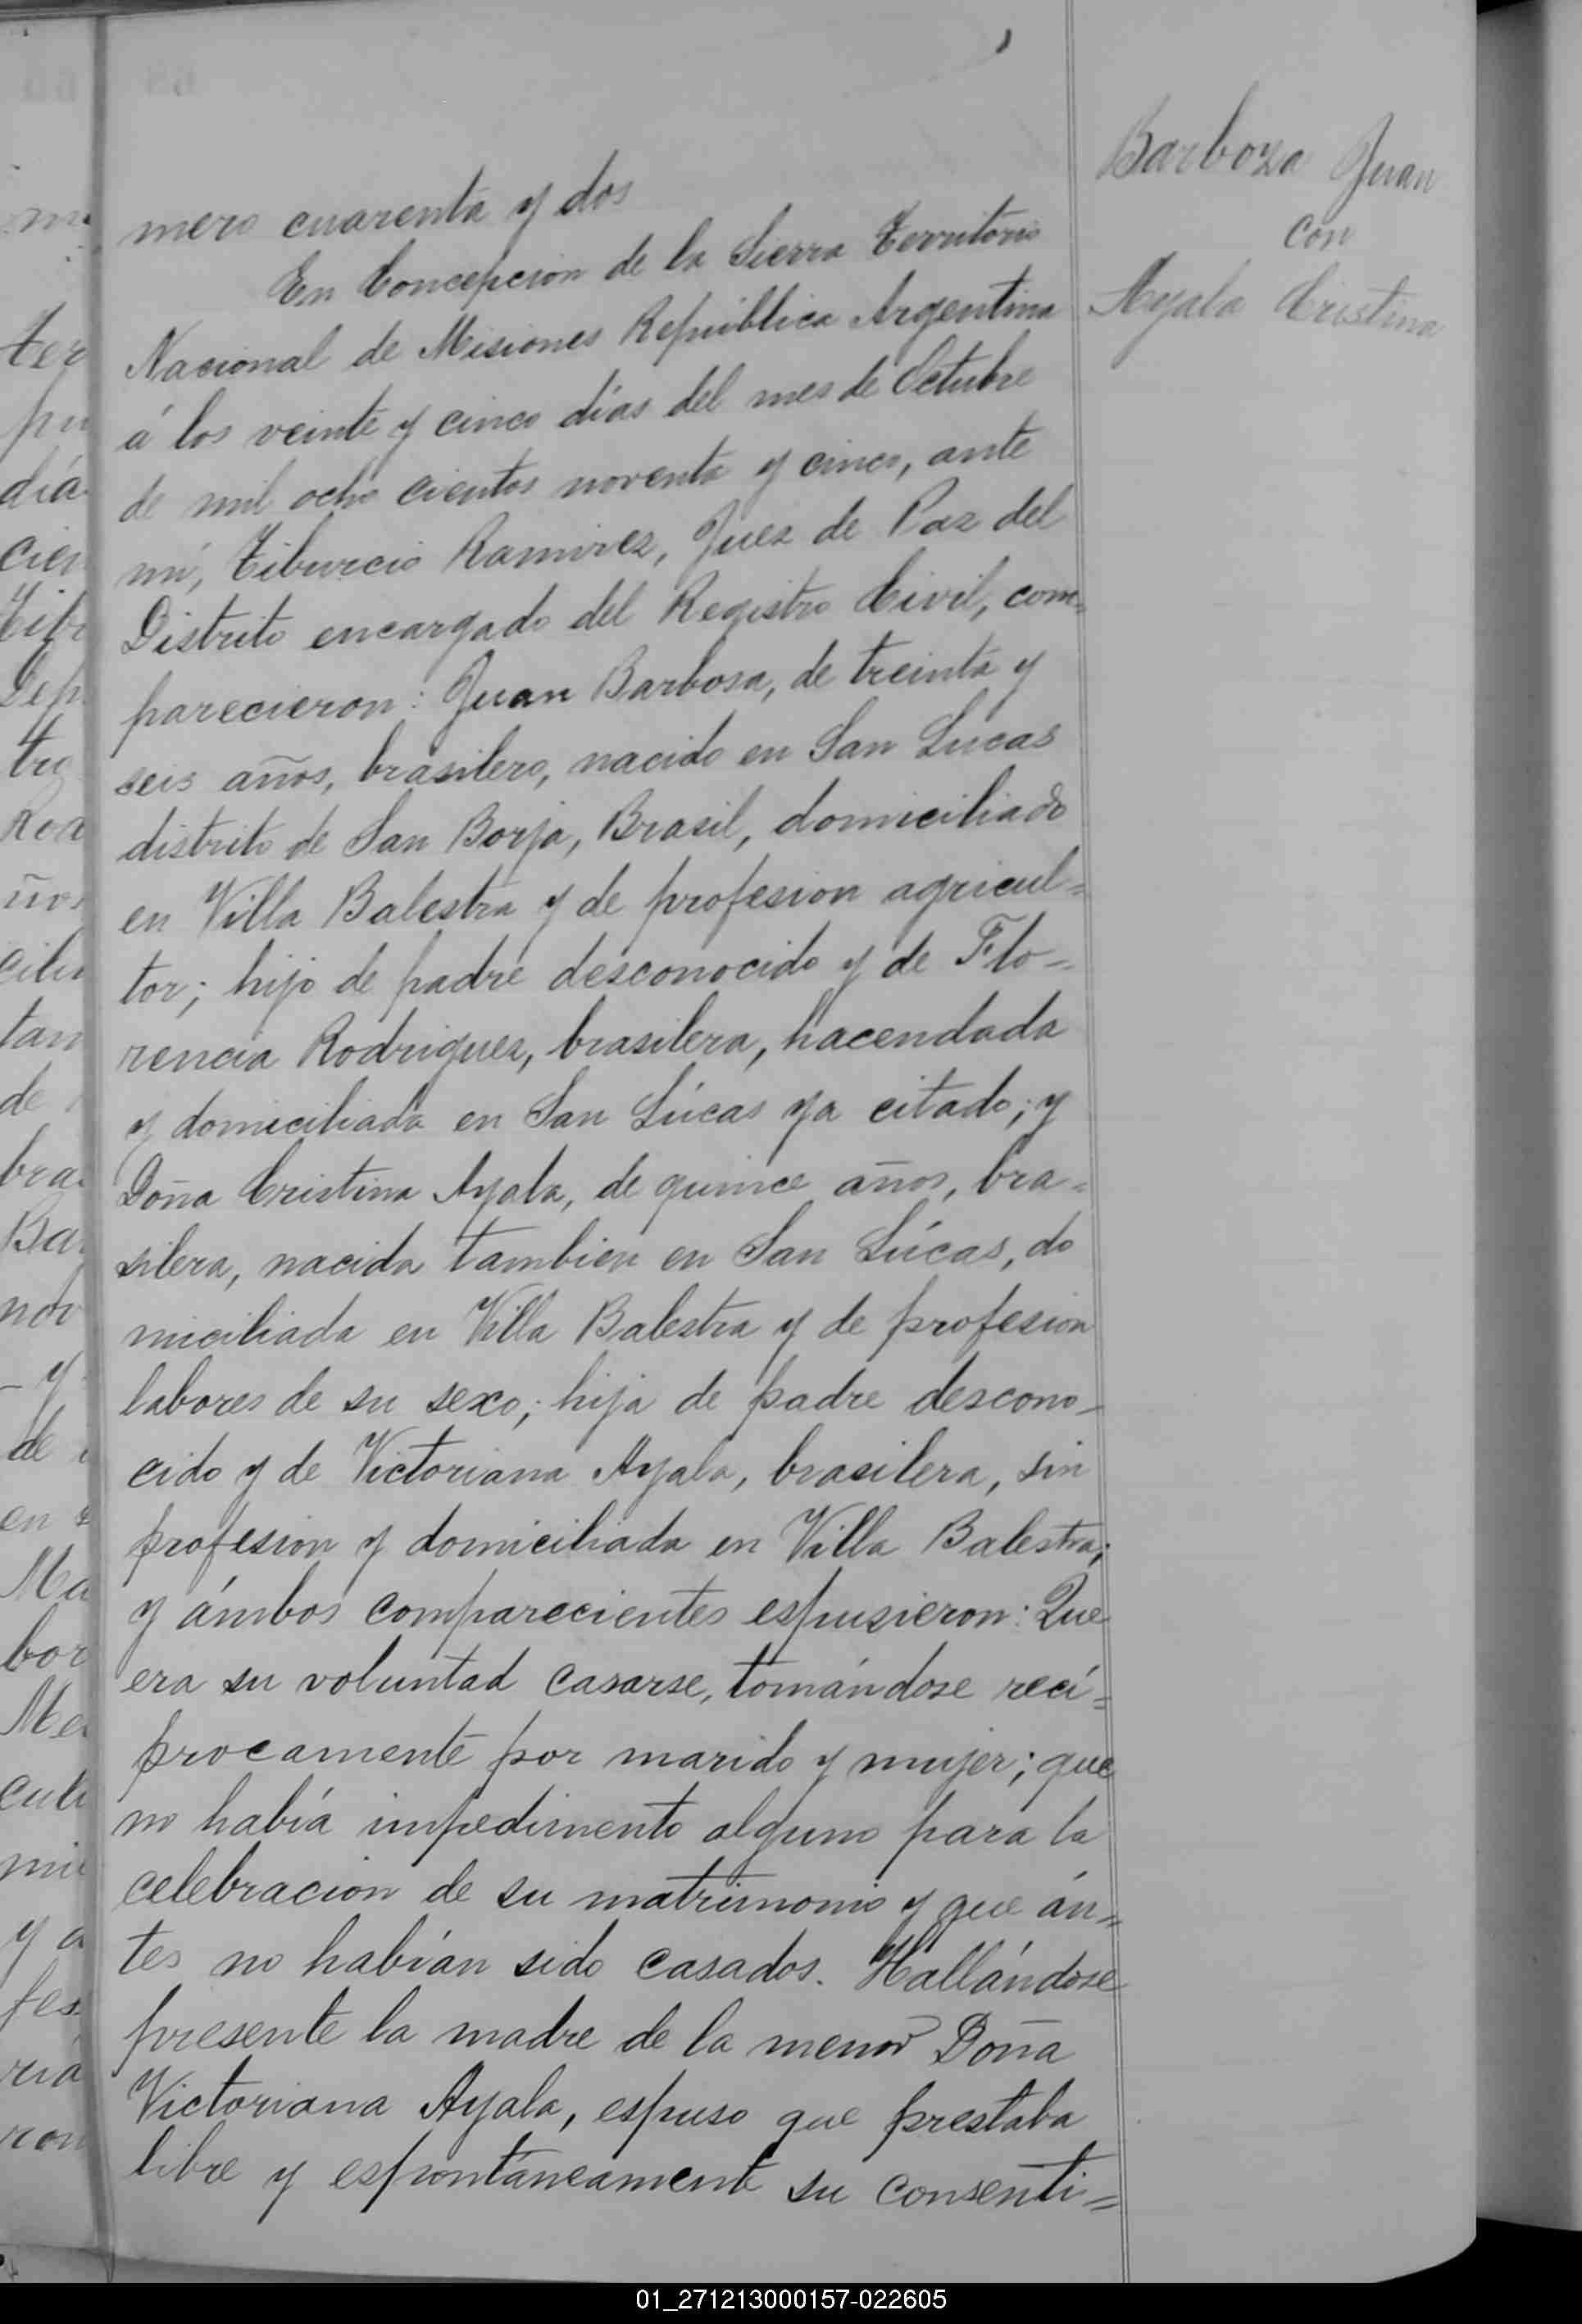 mero cuarenta y dos
En Concepcion de la Sierra Territorio
Nacional de Misiones República Argentina
á los veinte y cinco días del mes de Octubre
de mil ocho cientos noventa y cinco, ante
mí, Tiburcio Ramirez, Juez de Paz del
Distrito encargado del Registro Civil, com=
parecieron: Juan Barbosa, de treinta y
seis años, brasilero, nacido en San Lucas
distrito de San Borja, Brasil, domiciliado
en Villa Balestra y de profesion agricul=
tor; hijo de padre desconocido y de Flo=
rencia Rodriguez, brasilera, hacendada
y domiciliada en San Lúcas ya citado; y
Doña Cristina Ayala, de quince años, bra=
silera, nacida tambien en San Lúcas, do
miciliada en Villa Balestra y de profesion
labores de su sexo; hija de padre descono-
cido y de Victoriana Ayala, brasilera, sin
profesion y domiciliada en Villa Balestra;
y ámbos comparecientes espusieron: Que
era su voluntad casarse, tomándose recí=
procamente por marido y mujer; que
no había impedimento alguno para la
celebracion de su matrimonio y que án=
tes no habían sido casados. Hallándose
presente la madre de la menor Doña
Victoriana Ayala, espuso que prestaba
libre y espontáneamente su consenti=
Barboza Juan
con
Ayala Cristina
ter
pu
día
cien
Tibu
tro
cili
tan
de
bra
Ba
y
de
en
Ma
bor
Me
cult
mil
y a
fes
ria
ron
01_271213000157-022605